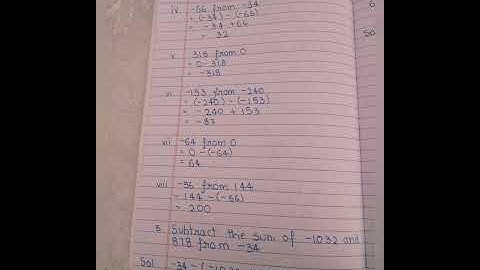 iv. -66 from -34
= (-34) - (-66)
= -34 + 66
= 32
v. 318 from 0
= 0-318
= -318
vi. -153 from -240
= (-240) - (-153)
= -240 + 153
= -87
vii -64 from 0
= 0 - (-64)
= 64
viii. -56 from 144
= 144 - (-56)
= 200
5. Subtract the sum of -1032 and
878 from -34
Sol -34 - (-1032
6
So